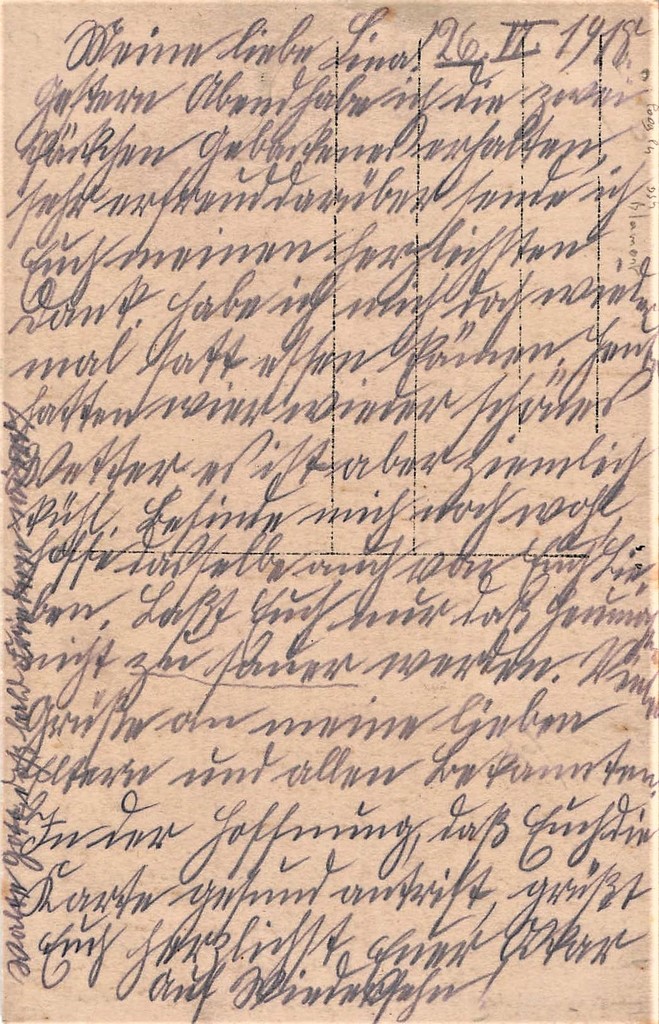 Meine liebe Lina! 26. VI. 1918.
Gestern Abend habe ich die zwei
Päckchen Gebackenes erhalten,
sehr erfreud darüber sende ich
Euch meinen herzlichsten
Dank, habe ich mich doch wieder
mal satt essen können. Heute
hatten wier wieder schönes
Wetter es ist aber ziemlich
kühl. Befinde mich noch wohl,
hoffe dasselbe auch von Euch Lie-
ben. Laßt Euch nur daß Heumachen
nicht zu sauer werden. Viele
Grüße an meine lieben
Eltern und allen Bekannten.
In der Hoffnung, daß Euch die
Karte gesund antrift, grüßt
Euch herzlichst Euer Oskar
Auf Wiedersehn!
Walte Gott, daß bald Frieden